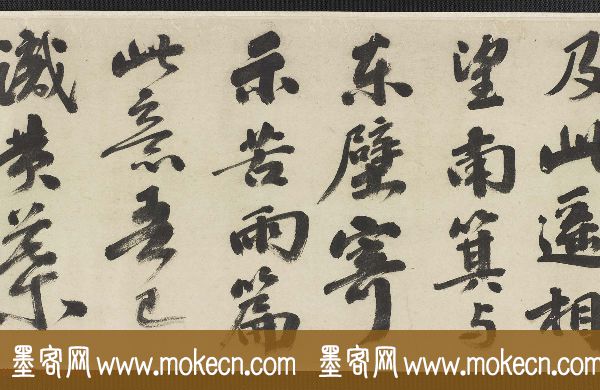 及此遙相
望南箕与
东壁寄
示苦雨篇
此意吾已
識黄葉
墨客网 www.mokecn.com 墨客网 www.mokecn.com